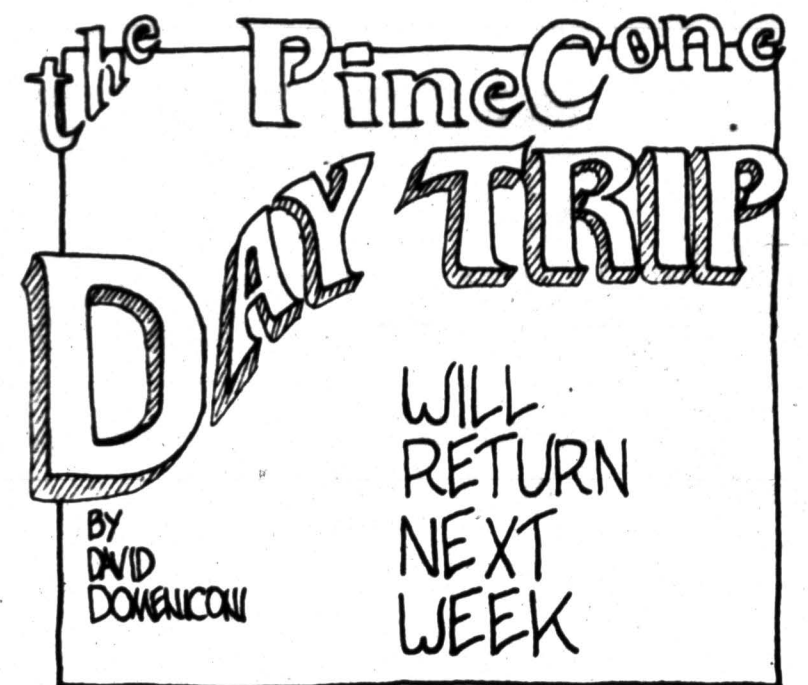 the PineCone
DAY TRIP
BY
DAVID
DOMENICONI
WILL
RETURN
NEXT
WEEK